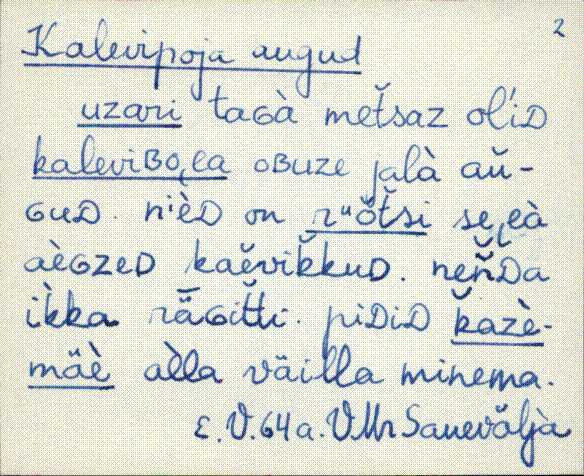 2
Kalevipoja augud
uzari taɢà met̆saz ol'iᴅ
kaleviʙo̭ea oʙuze jalà au̯-
ɢuᴅ. n'ièᴅ on ruot̆si sḙeà
aèɢzeᴅ kaĕvik̆kuᴅ. nen̆ᴅa
ik̀ka räɢit̆ti. piᴅiᴅ k̆azè-
mäè al̀la väilla minema.
E. V. 64 a. VMr Sauevälja